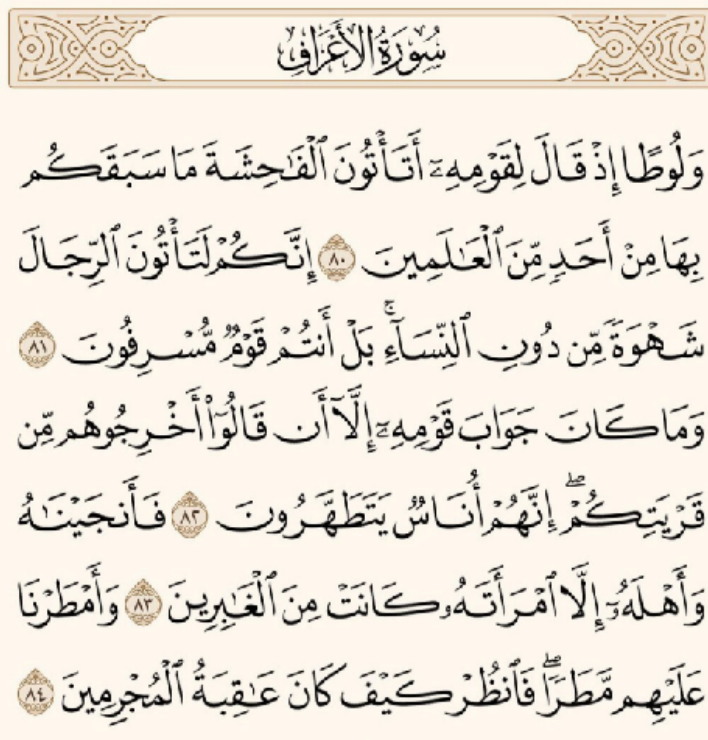 سُورَةُ الأَعْرَافِ
وَلُوطًا إِذْ قَالَ لِقَوْمِهِۦٓ أَتَأْتُونَ ٱلْفَٰحِشَةَ مَا سَبَقَكُم
بِهَا مِنْ أَحَدٍ مِّنَ ٱلْعَٰلَمِينَ ٨٠ إِنَّكُمْ لَتَأْتُونَ ٱلرِّجَالَ
شَهْوَةً مِّن دُونِ ٱلنِّسَآءِ ۚ بَلْ أَنتُمْ قَوْمٌ مُّسْرِفُونَ ٨١
وَمَا كَانَ جَوَابَ قَوْمِهِۦٓ إِلَّآ أَن قَالُوٓا۟ أَخْرِجُوهُم مِّن
قَرْيَتِكُمْ ۖ إِنَّهُمْ أُنَاسٌ يَتَطَهَّرُونَ ٨٢ فَأَنجَيْنَٰهُ
وَأَهْلَهُۥٓ إِلَّا ٱمْرَأَتَهُۥ كَانَتْ مِنَ ٱلْغَٰبِرِينَ ٨٣ وَأَمْطَرْنَا
عَلَيْهِم مَّطَرًا ۖ فَٱنظُرْ كَيْفَ كَانَ عَٰقِبَةُ ٱلْمُجْرِمِينَ ٨٤